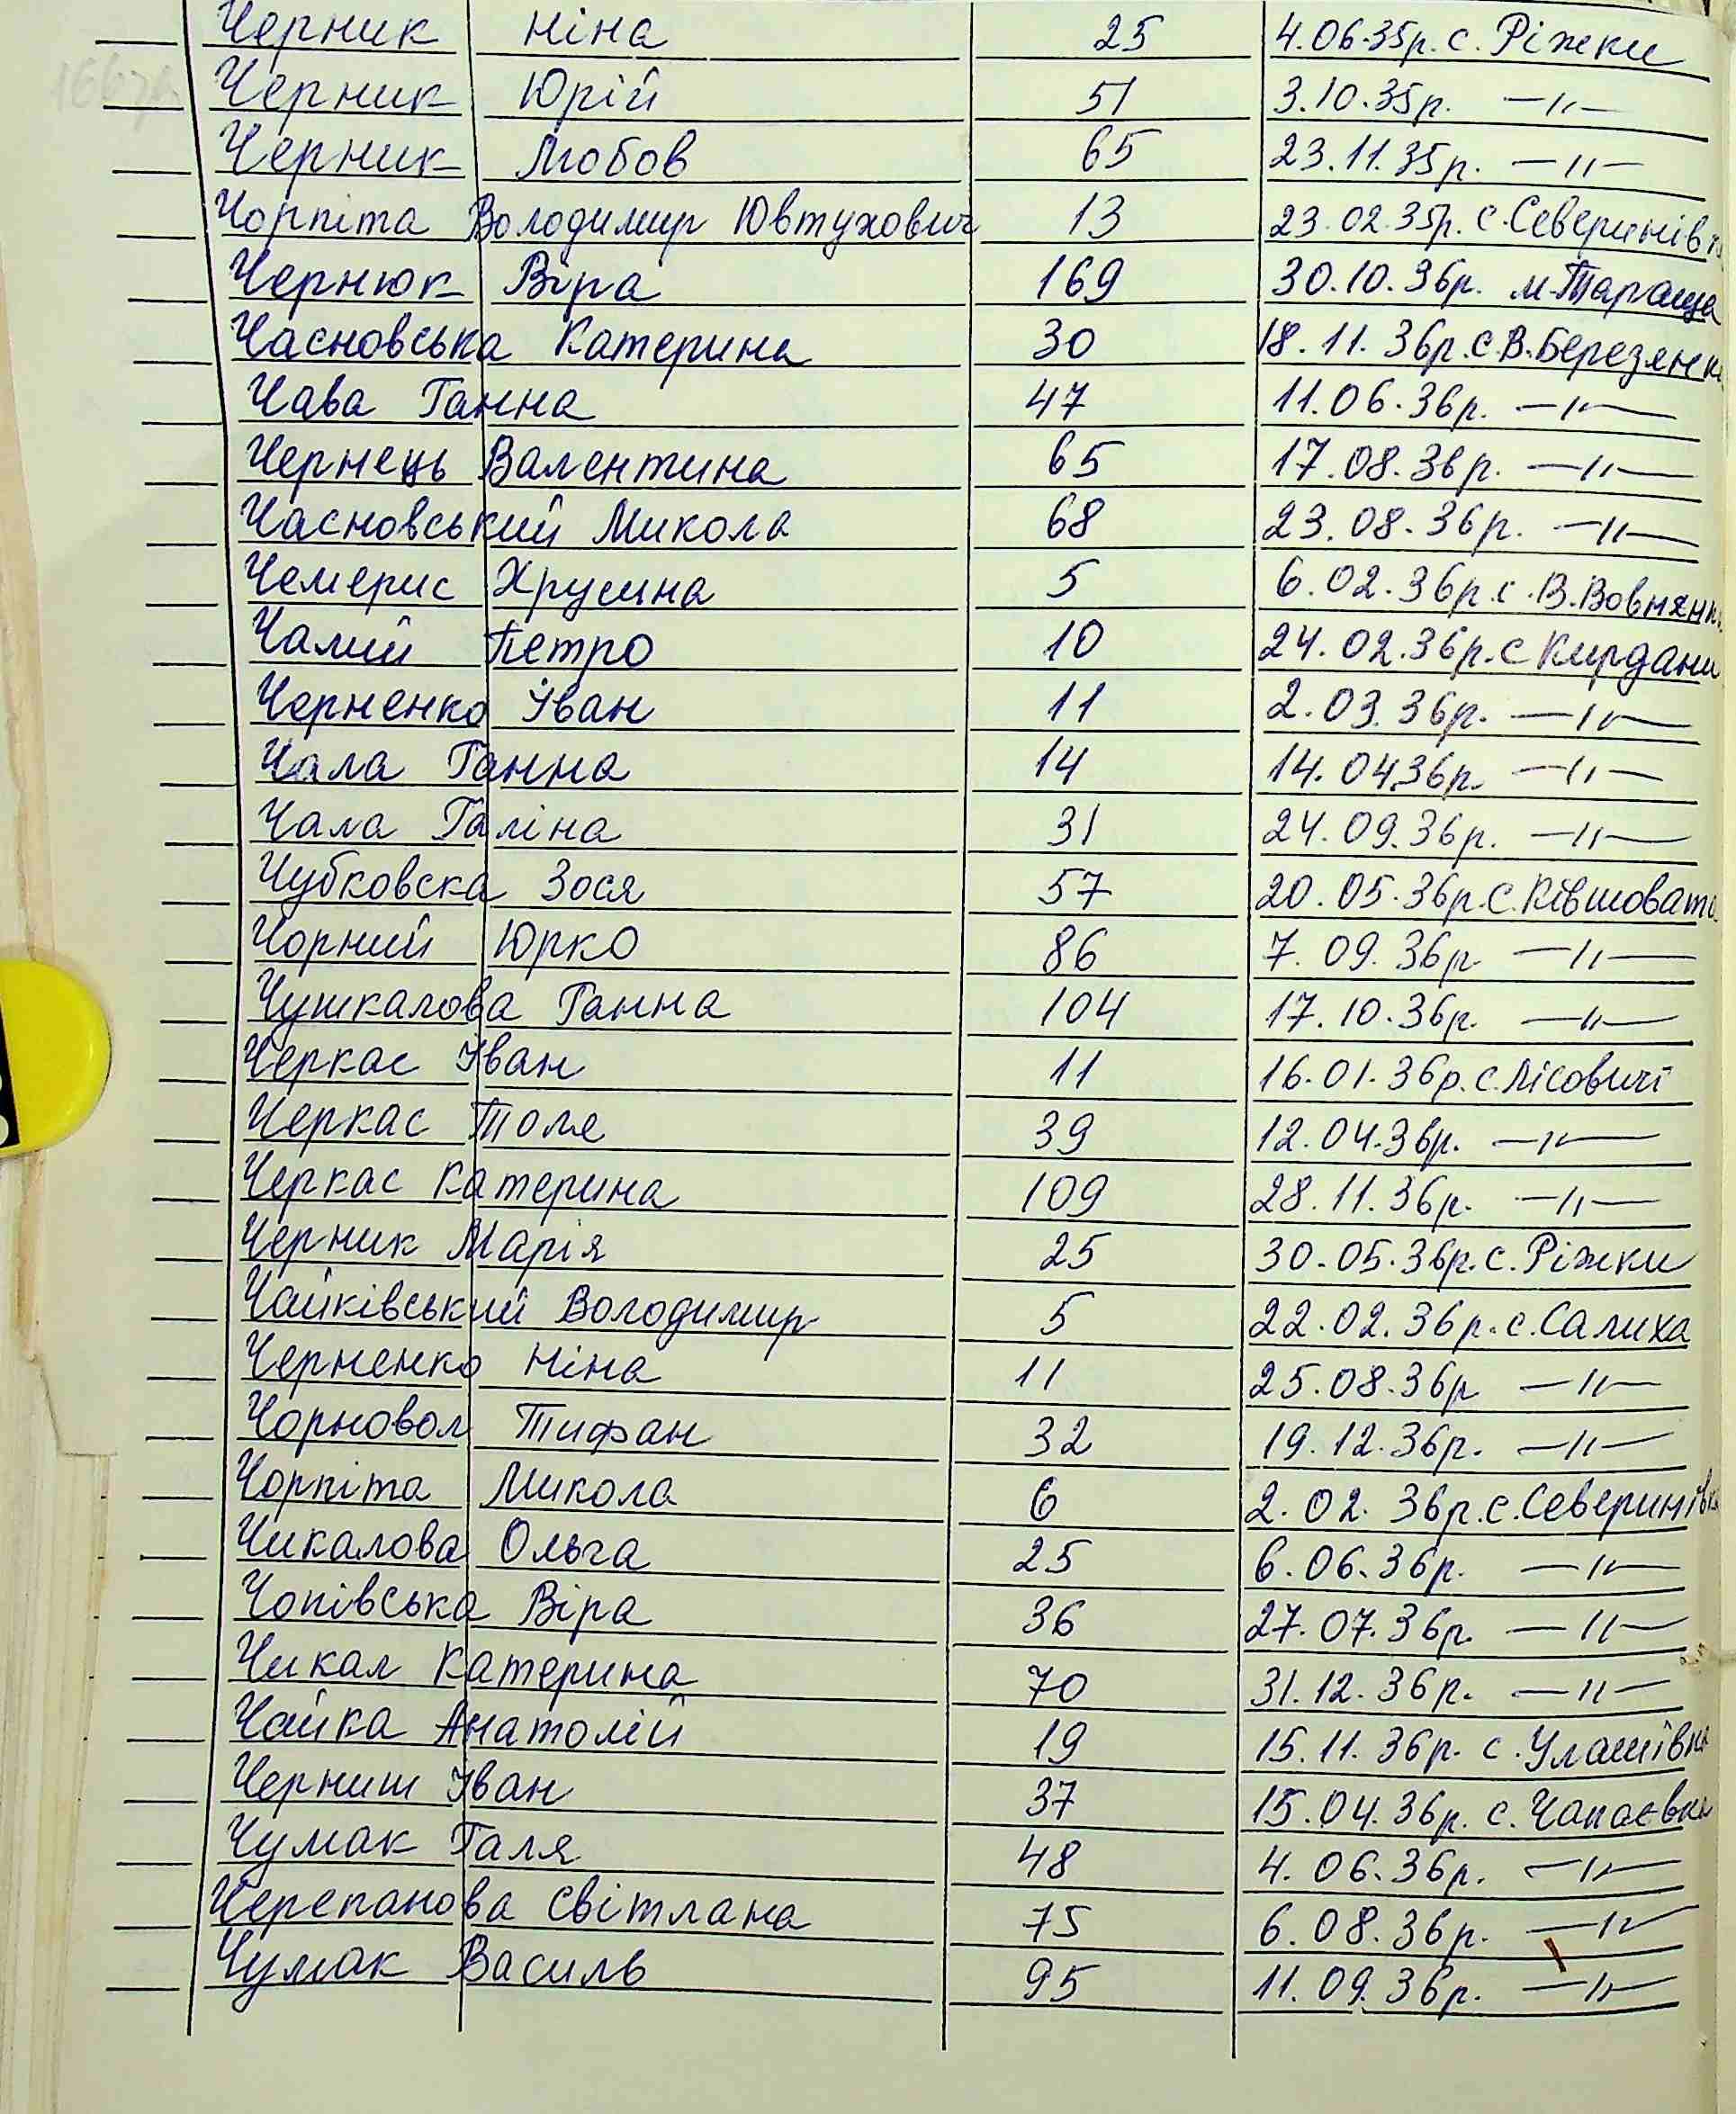 Черник Ніна 25 4.06.35р. с. Ріжки
Черник Юрій 51 3.10.35р. —"—
Черник Любов 65 23.11.35р. —"—
Чорпіта Володимир Ювтухович 13 23.02.35р. с. Северинівка
Чернюк Віра 169 30.10.36р. м. Тараща
Часновська Катерина 30 18.11.36р. с. В. Березянка
Чава Ганна 47 11.06.36р. —"—
Чернець Валентина 65 17.08.36р. —"—
Часновський Микола 68 23.08.36р. —"—
Чемерис Хрусина 5 6.02.36р. с. В. Вовнянка
Чалий Петро 10 24.02.36р. с Кирдани
Черненко Іван 11 2.03.36р. —"—
Чала Ганна 14 14.04.36р. —"—
Чала Галіна 31 24.09.36р. —"—
Чубковска Зося 57 20.05.36р. с. Ківшовата
Чорний Юрко 86 7.09.36р —"—
Чушкалова Ганна 104 17.10.36р. —"—
Черкас Іван 11 16.01.36р. с. Лісовичі
Черкас Толе 39 12.04.36р. —"—
Черкас Катерина 109 28.11.36р. —"—
Черник Марія 25 30.05.36р. с. Ріжки
Чайківський Володимир 5 22.02.36р. с. Салиха
Черненко Ніна 11 25.08.36р —"—
Чорновол Тифан 32 19.12.36р. —"—
Чорпіта Микола 6 2.02.36р. с. Северинівка
Чикалова Ольга 25 6.06.36р. —"—
Чопівська Віра 36 27.07.36р. —"—
Чикал Катерина 70 31.12.36р. —"—
Чайка Анатолій 19 15.11.36р. с. Улашівка
Черниш Іван 37 15.04.36р. с. Чапаєвка
Чумак Галя 48 4.06.36р. —"—
Черепанова Світлана 75 6.08.36р. —"—
Чумак Василь 95 11.09.36р. —"—